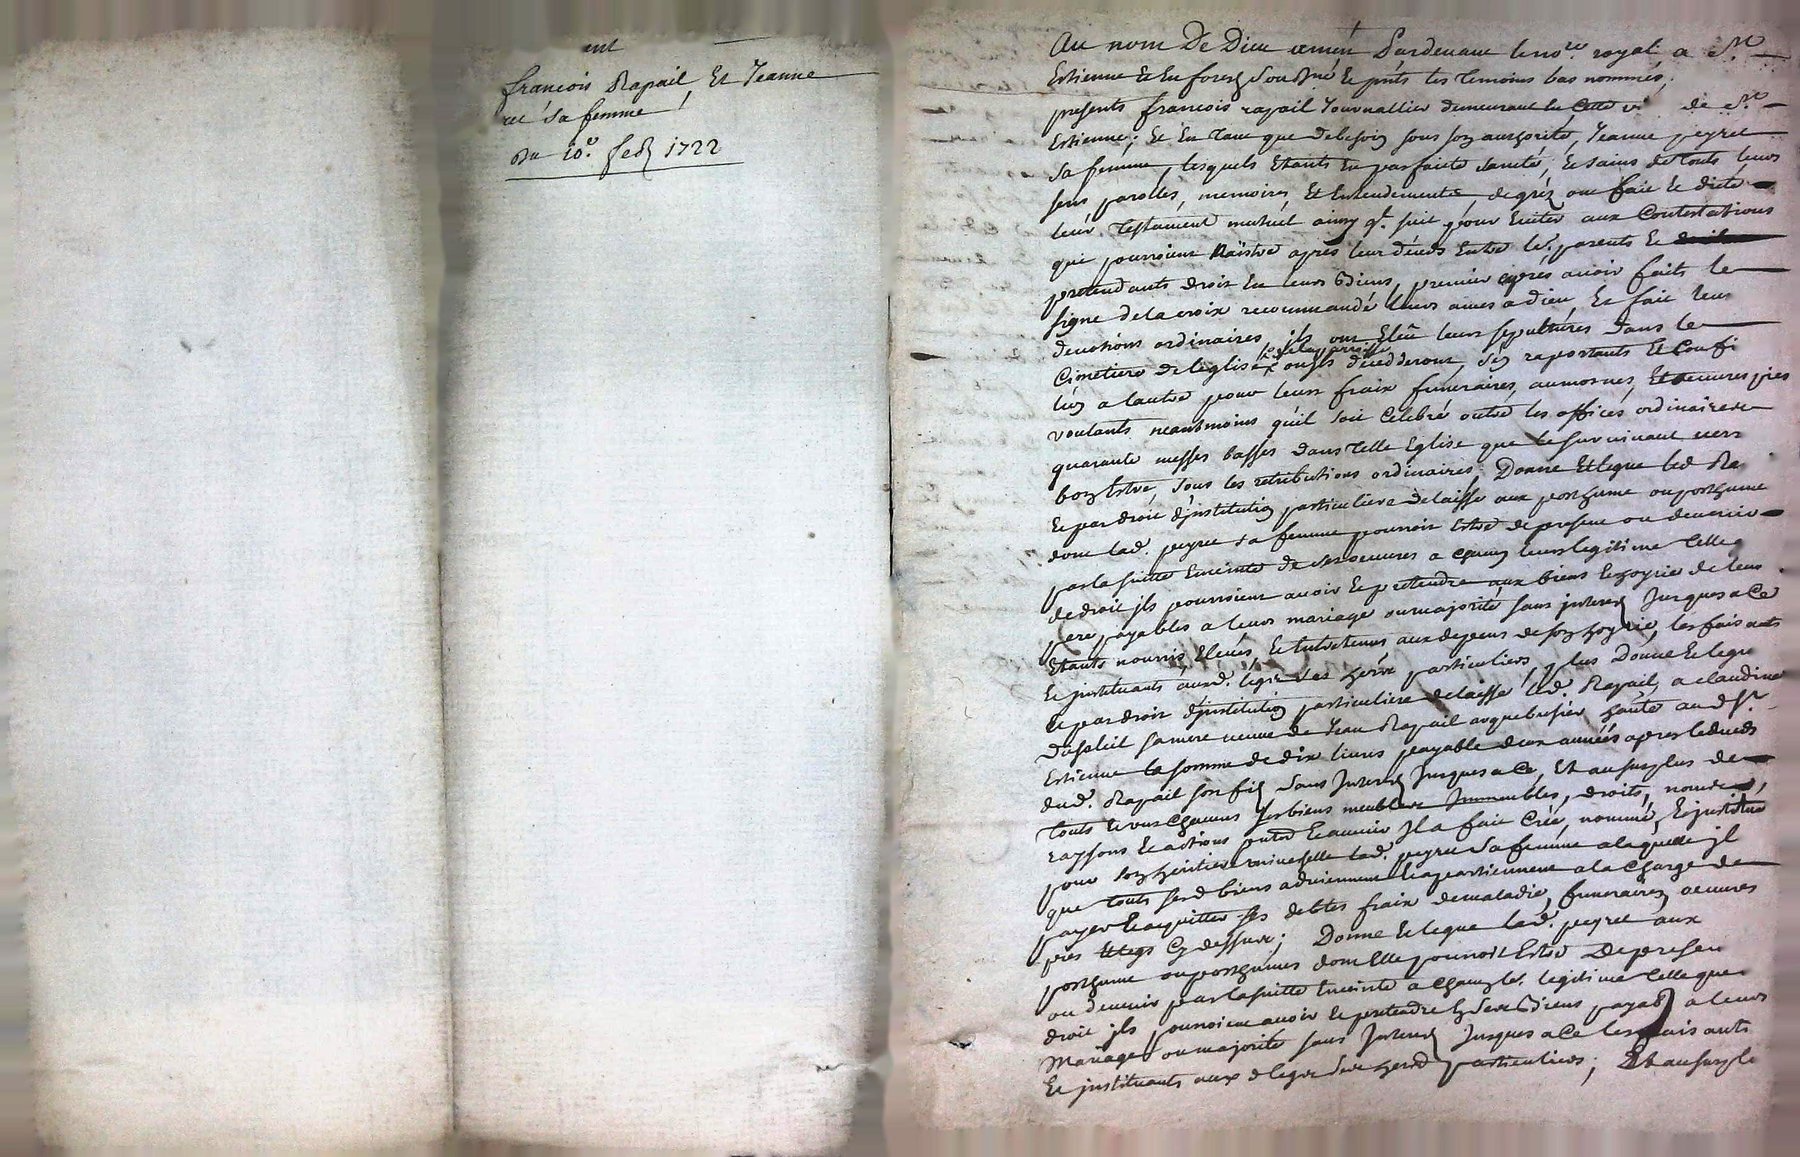 ent
francois Rapail Et Jeanne
sa femme
Du 10e feb 1722
Au nom De Dieu amén Pardevant le nore royal a St
Estienne En forestz Soubsné Et pnts les temoins bas nommés.
presents francois rapail Journallier demeurant En Cette de St
Estienne, Et En tant que de besoin sous son authorité, Jeanne peyret
sa femme, lesquels Etants En parfaite santé, Et sains de touts leurs
sens parolles, memoires, Et Entendements, de gréz ont fait Et dicté
leur Testament mutuel ainsy q. suit pour Eviter aux Contestations
qui pourroient Naistre apres leur déceds Entre lrs parents Et
pretendants droit En leurs Biens, premier apres avoir faits le
signe de la croix recommandé leurs ames a dieu, Et fait leurs
devotions ordinaires, ils ont Eleu leurs sepultures dans le
Cimetiere de leglise de la parroisse ou ils décedderont, s'en raportants Et Confi
l'un a lautre pour leurs fraix funeraires, aumosnes, Et oeuvres pies
voulants neantmoins qu'il soit Celebré outre les offices ordinaires
quarante messes basses dans telle Eglise que le survivant verra
bon Estre, sous les retributions ordinaires; Donne Et legue led Ra
Et par droit d'institution particuliere delaisse aux posthume ou posthume
dont lad. peyret sa femme pourroit Estre de present ou devenir
par la suitte Enceinte de ses oeuvres a chacun leurs legitime telle
de droit ils pourroient avoir Et pretendre aux biens Et hoyrie de leur
pere payables a leurs mariage ou majorité sans interest Jusques a Ce
Etants nourris, Elevés, Et Entretenus aux depens de son hoyrie, les faisants
Et instituants auxd. legitimes heirs particuliers, plus Donne Et legue
Et par droit d'institution particuliere delaisse led. Rapail, a claudine
sa mere veuve de Jean Rapail arquebusier habte aud St.
Estienne la somme de dix livres payable deux années apres le deceds
dud. Rapail son fils sans Interest Jusques a Ce, Et au surplus de
touts Et uns Chacuns ses biens meubles Immeubles, droits, noms,
raysons Et actions Il a fait Créé, nommé, Et institué
pour son heritiere universelle lad. peyret sa femme a laquelle il
que touts sesd biens adviennent Et apartiennent a la Charge de
payer Et aquitter ses debtes fraix de maladie, funeraires, oeuvres
pies Et legs Cy dessus; Donne Et legue lad. peyret aux
posthume ou posthumes dont Elle pourroit Estre De present
ou devenir par la suitte Enceinte a chacun lr legitime telle que
droit ils pourroient avoir Et pretendre En ses Biens payab a leurs
Mariage ou majorité sans Interest Jusques a Ce les faisants
Et instituants aux d legs ses heirs particuliers; Et au surpl